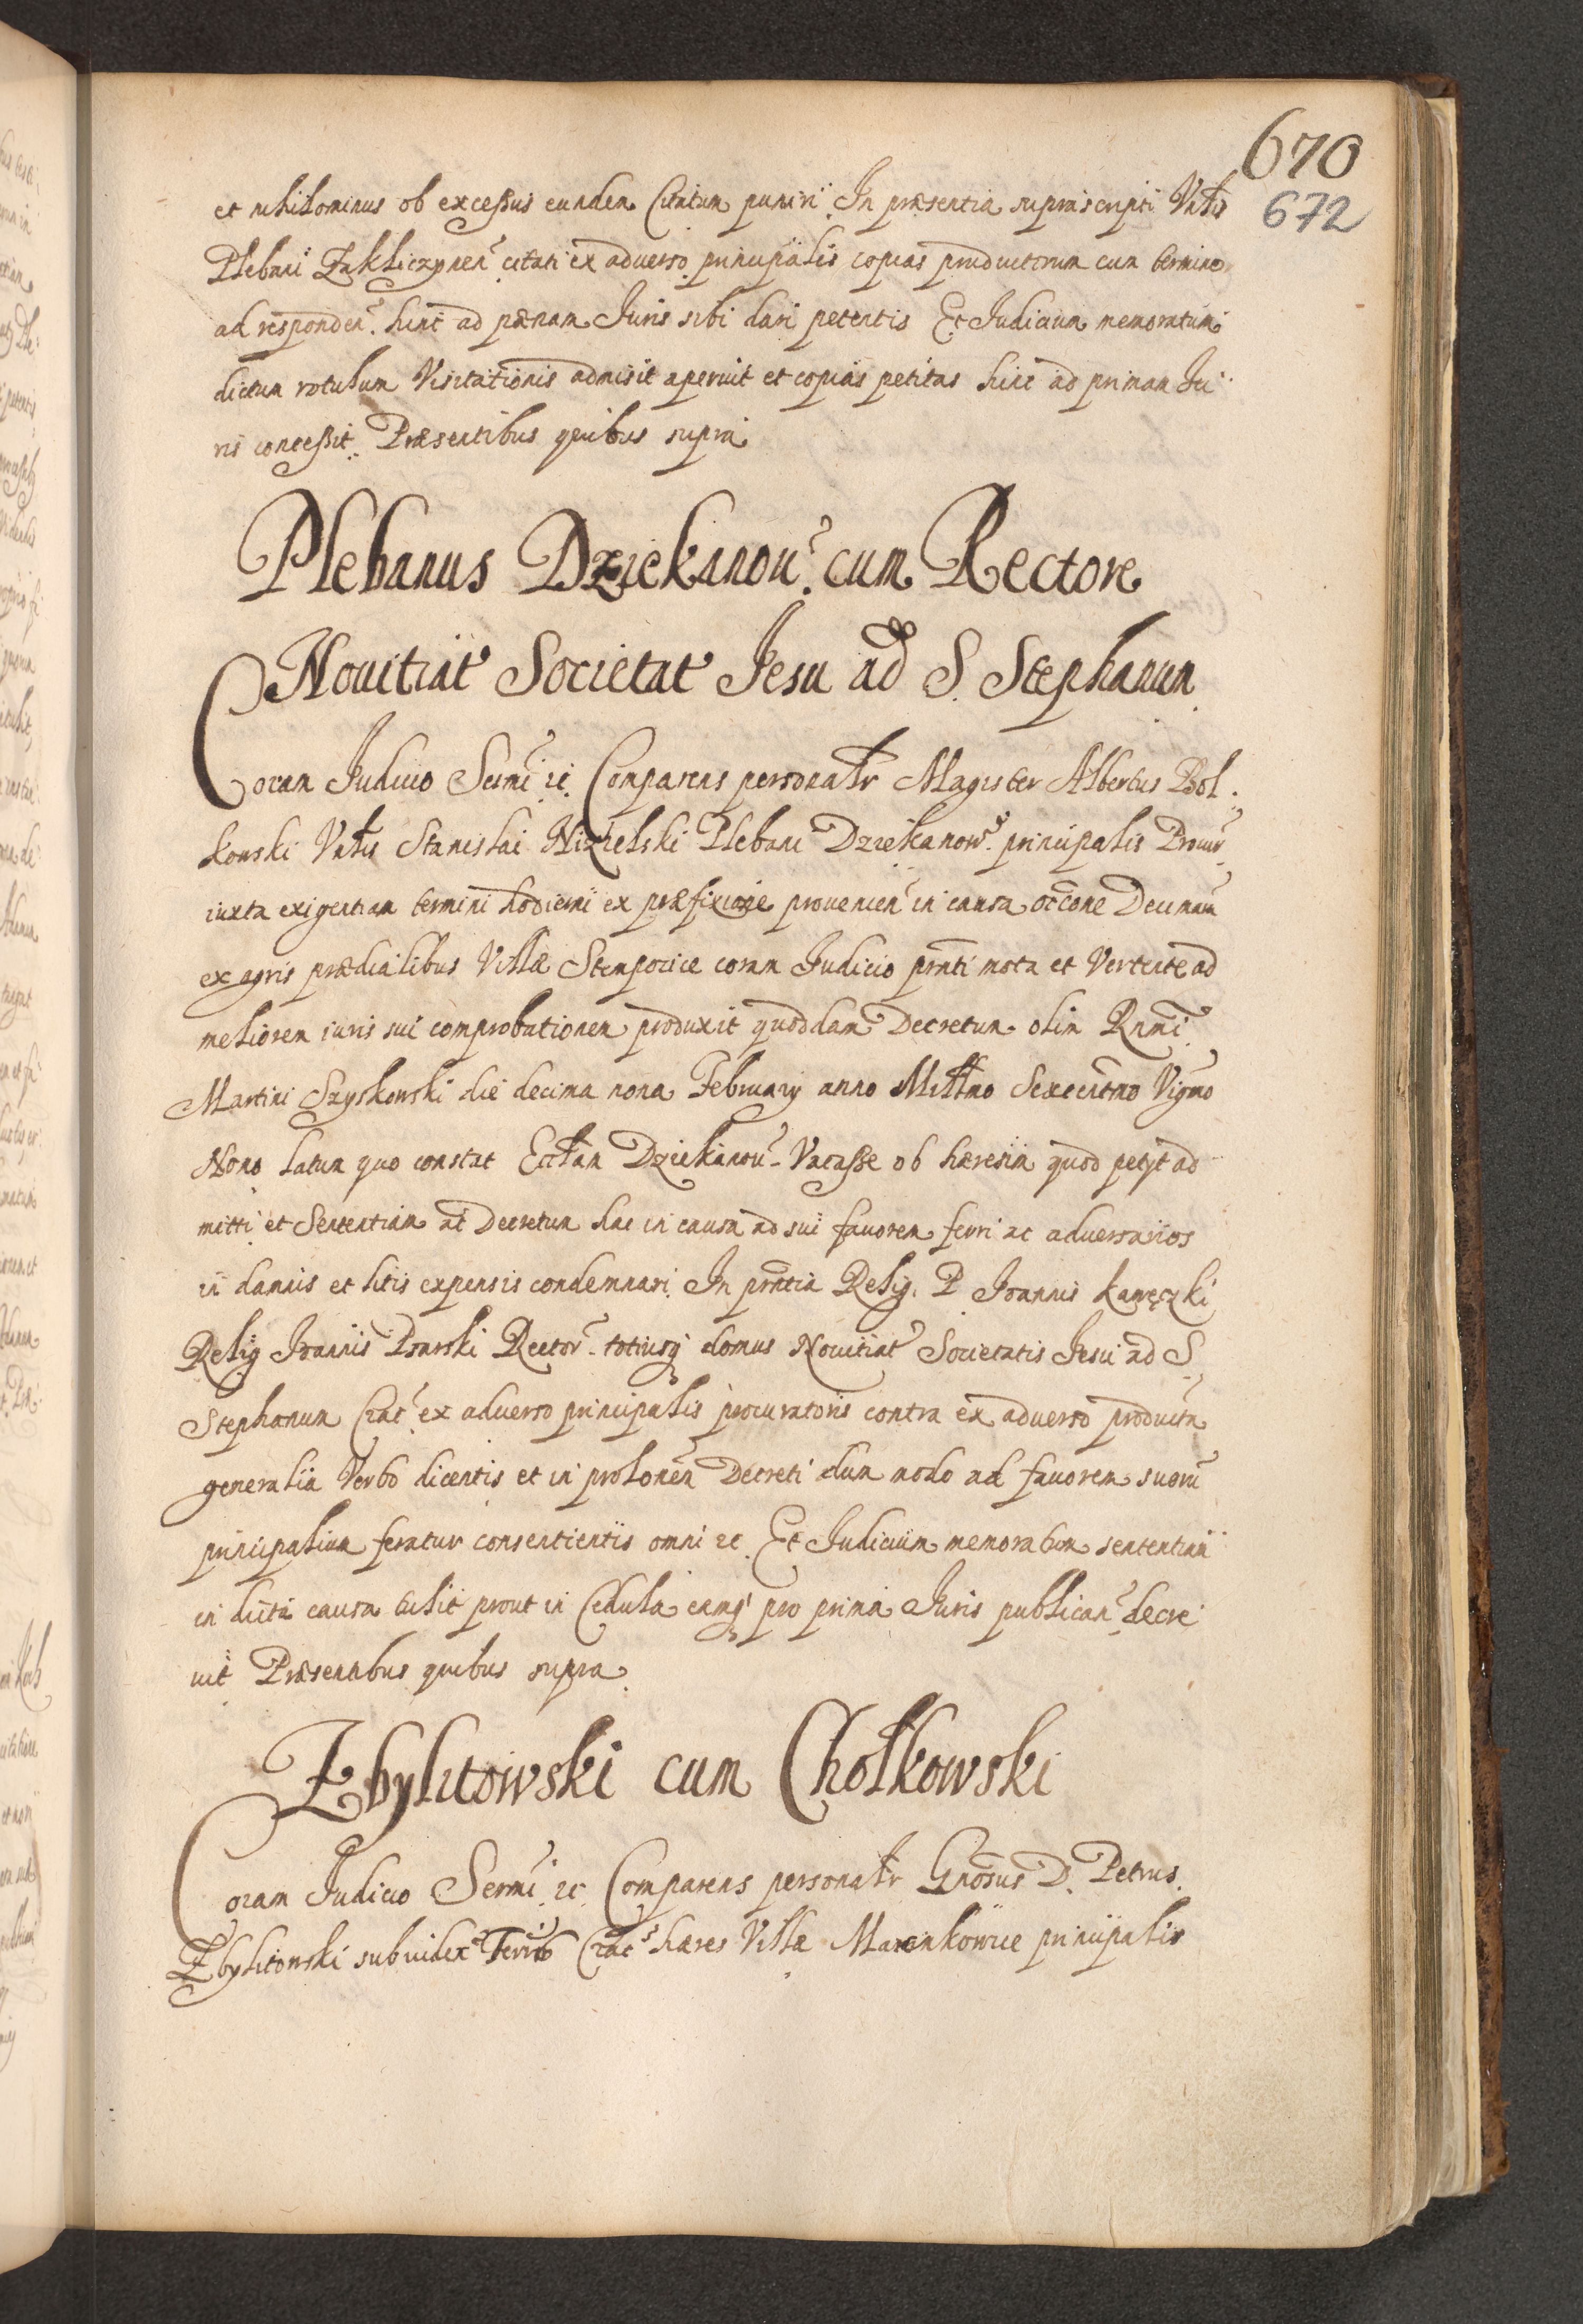 670
672
et nihilominus ob excessus eundem Citatum puniri In præsentia suprascripti Vntis
Plebani Zakliczynen citati ex aduerso principalis copias productorum cum termino
ad responden. hinc ad primam Juris sibi dari petentis Et Judicium memoratum
dictum rotulum Visitationis admisit aperuit et copias petitas hinc ad primam Ju
ris concessit. Præsentibus quibus supra
Plebanus Dziekanou. cum Rectore
Nouitiat Societat Jesu ad S. Stephanum
Coram Judicio Sermi etc. Comparens personaltr Magister Albertus Bol
kowski Vntis Stanislai Nizielski Plebani Dziekanow. principalis Procur
iuxta exigentiam termini hodierni ex præfixione prouenien in causa occone Decimaru
ex agris prædialibus Villæ Stempocice coram Judicio prnti mota et Vertente ad
meliorem iuris sui comprobationem produxit quoddam Decretum olim Rnmi
Martini Szyskowski die decima nona February anno Millmo Sexcentmo Vigmo
Nono latum quo constat Ecclam Dziekanou. Vacasse ob hæresim quod petyt ad
mitti et Sententiam ac Decretum hac in causa ad sui fauorem ferri ac aduersarios
in damnis et litis expensis condemnari. In prntia Relig. P. Joannis Kawęczki
Relig Joannis Psarski Rector. totiusq domus Nouitiat Societatis Jesu ad S.
Stephanum Crac. ex aduerso principalis procuratoris contra ex aduerso producta
generalia Verbo dicentis et in prolonen Decreti dum modo ad fauorem suoru
principalium feratur consentientis omni etc. Et Judicium memoratum sententiam
in dicta causa tulit prout in Cedula eamq pro prima Juris publican. decre
uit Præsentibus quibus supra
Zbylitowski cum Chołkowski
Coram Judicio Sermi etc. Comparens personaltr Gnosus D. Petrus
Zbylitowski subiudex Terris Crac hæres Villæ Marcinkowice principalis